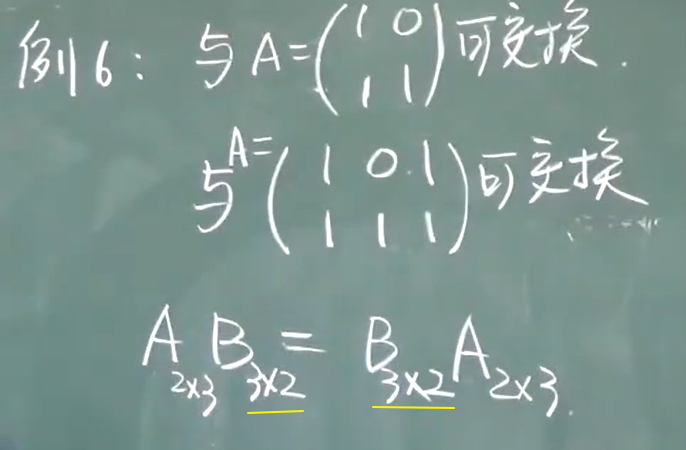 例6: 与A=(1 0
1 1)可交换.
与A=(1 0 1
1 1 1)可交换
A2×3 B3×2 = B3×2 A2×3.